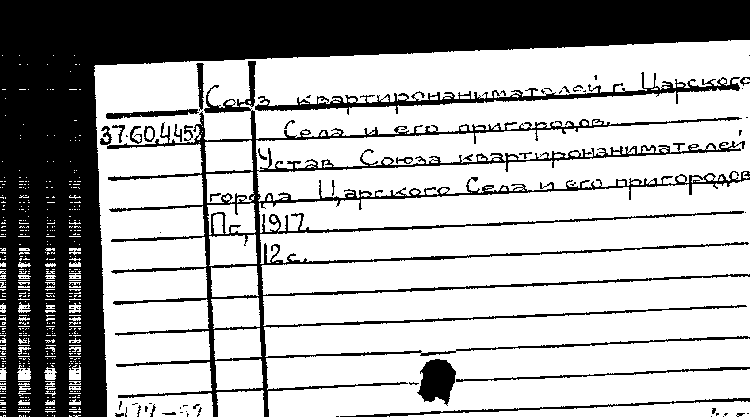 Союз квартиронанимателей г. Царского
37.60.4.452 Села и его пригородов.
Устав Союза квартиронанимателей
города Царского Села и его пригородов
Пг, 1917.
12 с.